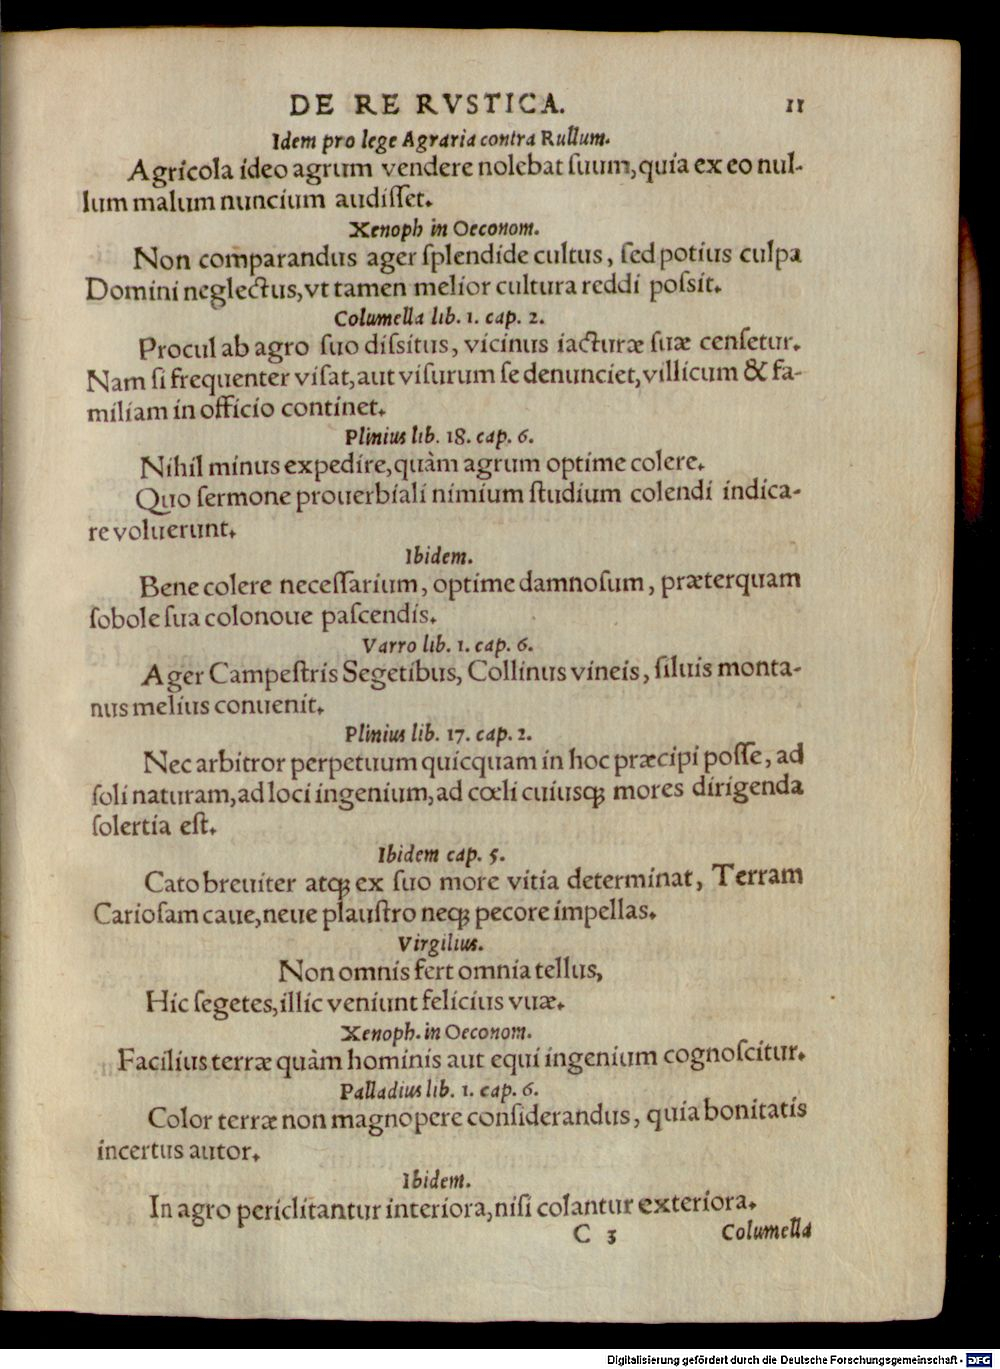 DE RE RVSTICA. 11
Idem pro lege Agraria contra Rullum.
Agricola ideo agrum vendere nolebat ſuum, quia ex eo nul-
lum malum nuncium audiſſet.
Xenoph in Oeconom.
Non comparandus ager ſplendide cultus, ſed potius culpa
Domini neglectus, vt tamen melior cultura reddi poſsit.
Columella lib. 1. cap. 2.
Procul ab agro ſuo diſsitus, vicinus iacturæ ſuæ cenſetur.
Nam ſi frequenter viſat, aut viſurum ſe denunciet, villicum & fa-
miliam in officio continet.
Plinius lib. 18. cap. 6.
Nihil minus expedire, quàm agrum optime colere.
Quo ſermone prouerbiali nimium ſtudium colendi indica-
re voluerunt.
Ibidem.
Bene colere neceſſarium, optime damnoſum, præterquam
ſobole ſua colonoue paſcendis.
Varro lib. 1. cap. 6.
Ager Campeſtris Segetibus, Collinus vineis, ſiluis monta-
nus melius conuenit.
Plinius lib. 17. cap. 2.
Nec arbitror perpetuum quicquam in hoc præcipi poſſe, ad
ſoli naturam, ad loci ingenium, ad cœli cuiusq; mores dirigenda
ſolertia eſt.
Ibidem cap. 5.
Cato breuiter atq; ex ſuo more vitia determinat, Terram
Carioſam caue, neue plauſtro neq; pecore impellas.
Virgilius.
Non omnis fert omnia tellus,
Hic ſegetes, illic veniunt felicius vuæ.
Xenoph. in Oeconom.
Facilius terræ quàm hominis aut equi ingenium cognoſcitur.
Palladius lib. 1. cap. 6.
Color terræ non magnopere conſiderandus, quia bonitatis
incertus autor.
Ibidem.
In agro periclitantur interiora, niſi colantur exteriora.
C 3 Columella
Digitalisierung gefördert durch die Deutsche Forschungsgemeinschaft - DFG